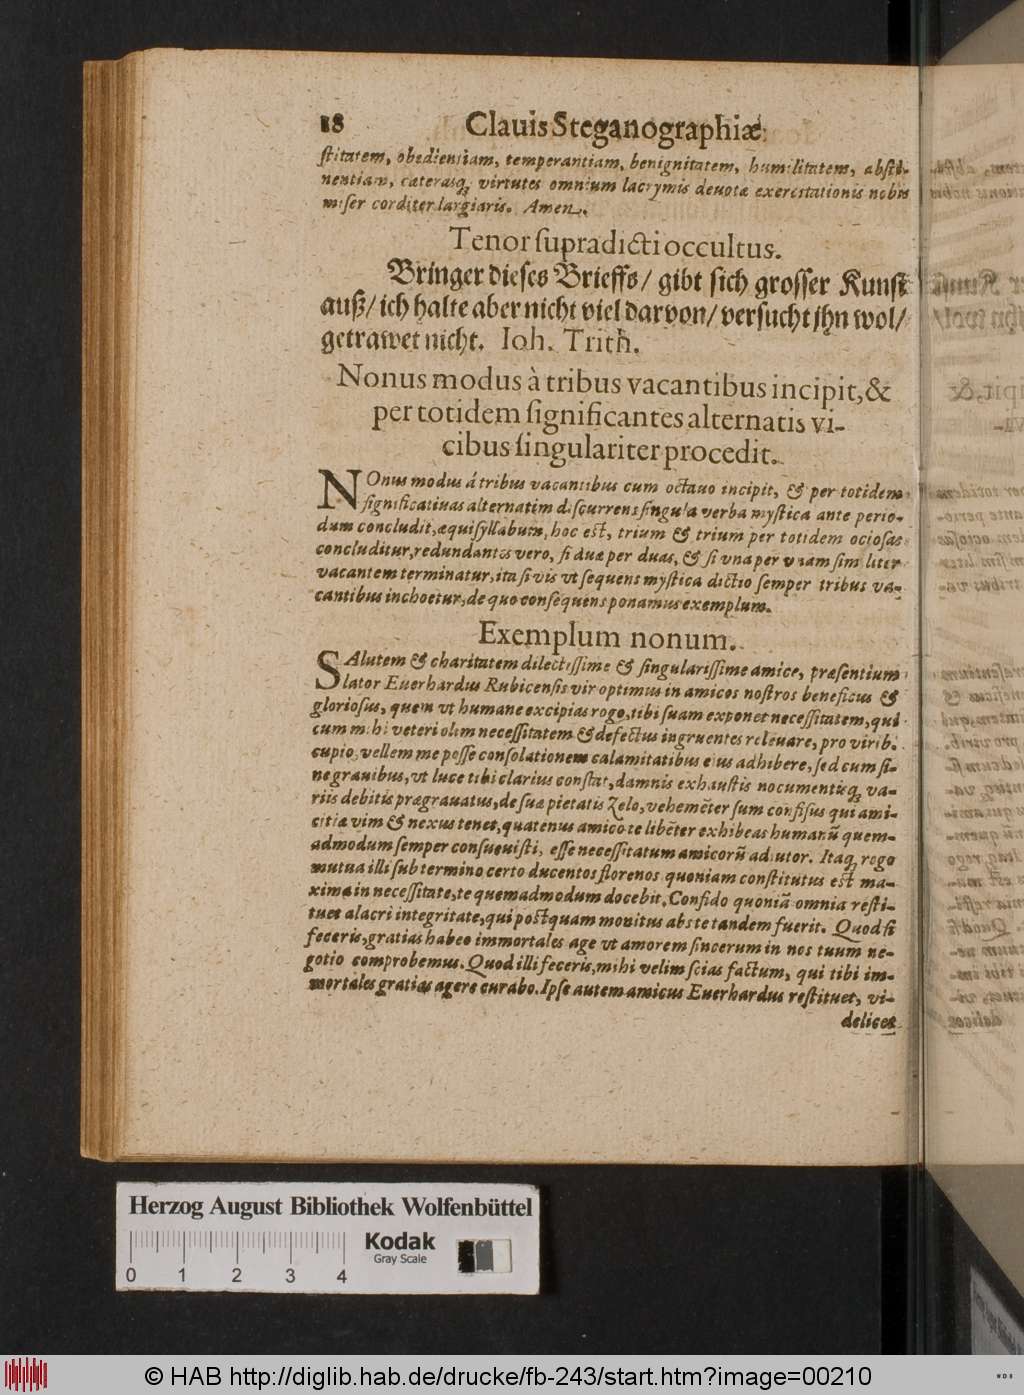 18 Clauis Steganographiæ
ſtitatem, obedientiam, temperantiam, benignitatem, humilitatem, abſti-
nentiam, cæterasq; virtutes omnium lacrymis deuotæ exercitationis nobis
miſer corditer largiaris. Amen.
Tenor ſupradicti occultus.
Bringer dieſes Brieffs/ gibt ſich groſſer Kunſt
auß/ ich halte aber nicht viel darvon/ verſucht jhn wol/
getrawet nicht. Ioh. Trith.
Nonus modus à tribus vacantibus incipit, &
per totidem ſignificantes alternatis vi-
cibus ſingulariter procedit.
NOnus modus á tribus vacantibus cum octauo incipit, & per totidem
ſignificatiuas alternatim diſcurrens ſingula verba myſtica ante perio-
dum concludit, æquiſyllabum, hoc eſt, trium & trium per totidem ocioſas
concluditur, redundantes vero, ſi duæ per duas, & ſi vna per vnam ſimiliter
vacantem terminatur, ita ſi vis vt ſequens myſtica dictio ſemper tribus va-
cantibus inchoetur, de quo conſequens ponamus exemplum.
Exemplum nonum.
SAlutem & charitatem dilectiſſime & ſingulariſſime amice, præſentium
lator Euerhardus Rubicenſis vir optimus in amicos noſtros beneficus &
glorioſus, quem vt humane excipias rogo, tibi ſuam exponet neceſſitatem, qui
cum mihi veteri olim neceſſitatem & defectus ingruentes releuare, pro virib.
cupio, vellem me poſſe conſolationem calamitatibus eius adhibere, ſed cum ſi-
ne grauibus, vt luce tibi clarius conſtat, damnis exhauſtis nocumentisq; va-
riis debitis prægrauatus, de ſua pietatis Zelo, vehemēter ſum confiſus qui ami-
citiæ vim & nexus tenet, quatenus amico te libēter exhibeas humanū quem-
admodum ſemper conſueuiſti, eſſe neceſſitatum amicorū adiutor. Itaq; rogo
mutua illi ſub termino certo ducentos florenos quoniam conſtitutus eſt ma-
xima in neceſſitate, te quemadmodum docebit, Confido quoniā omnia reſti-
tuet alacri integritate, qui poſtquam monitus abs te tandem fuerit. Quod ſi
feceris, gratias habeo immortales age vt amorem ſincerum in nos tuum ne-
gotio comprobemus. Quod illi feceris, mihi velim ſcias factum, qui tibi im-
mortales gratias agere curabo. Ipſe autem amicus Euerhardus reſtituet, vi-
delicet
Herzog August Bibliothek Wolfenbüttel
Kodak
Gray Scale
0 1 2 3 4
© HAB http://diglib.hab.de/drucke/fb-243/start.htm?image=00210